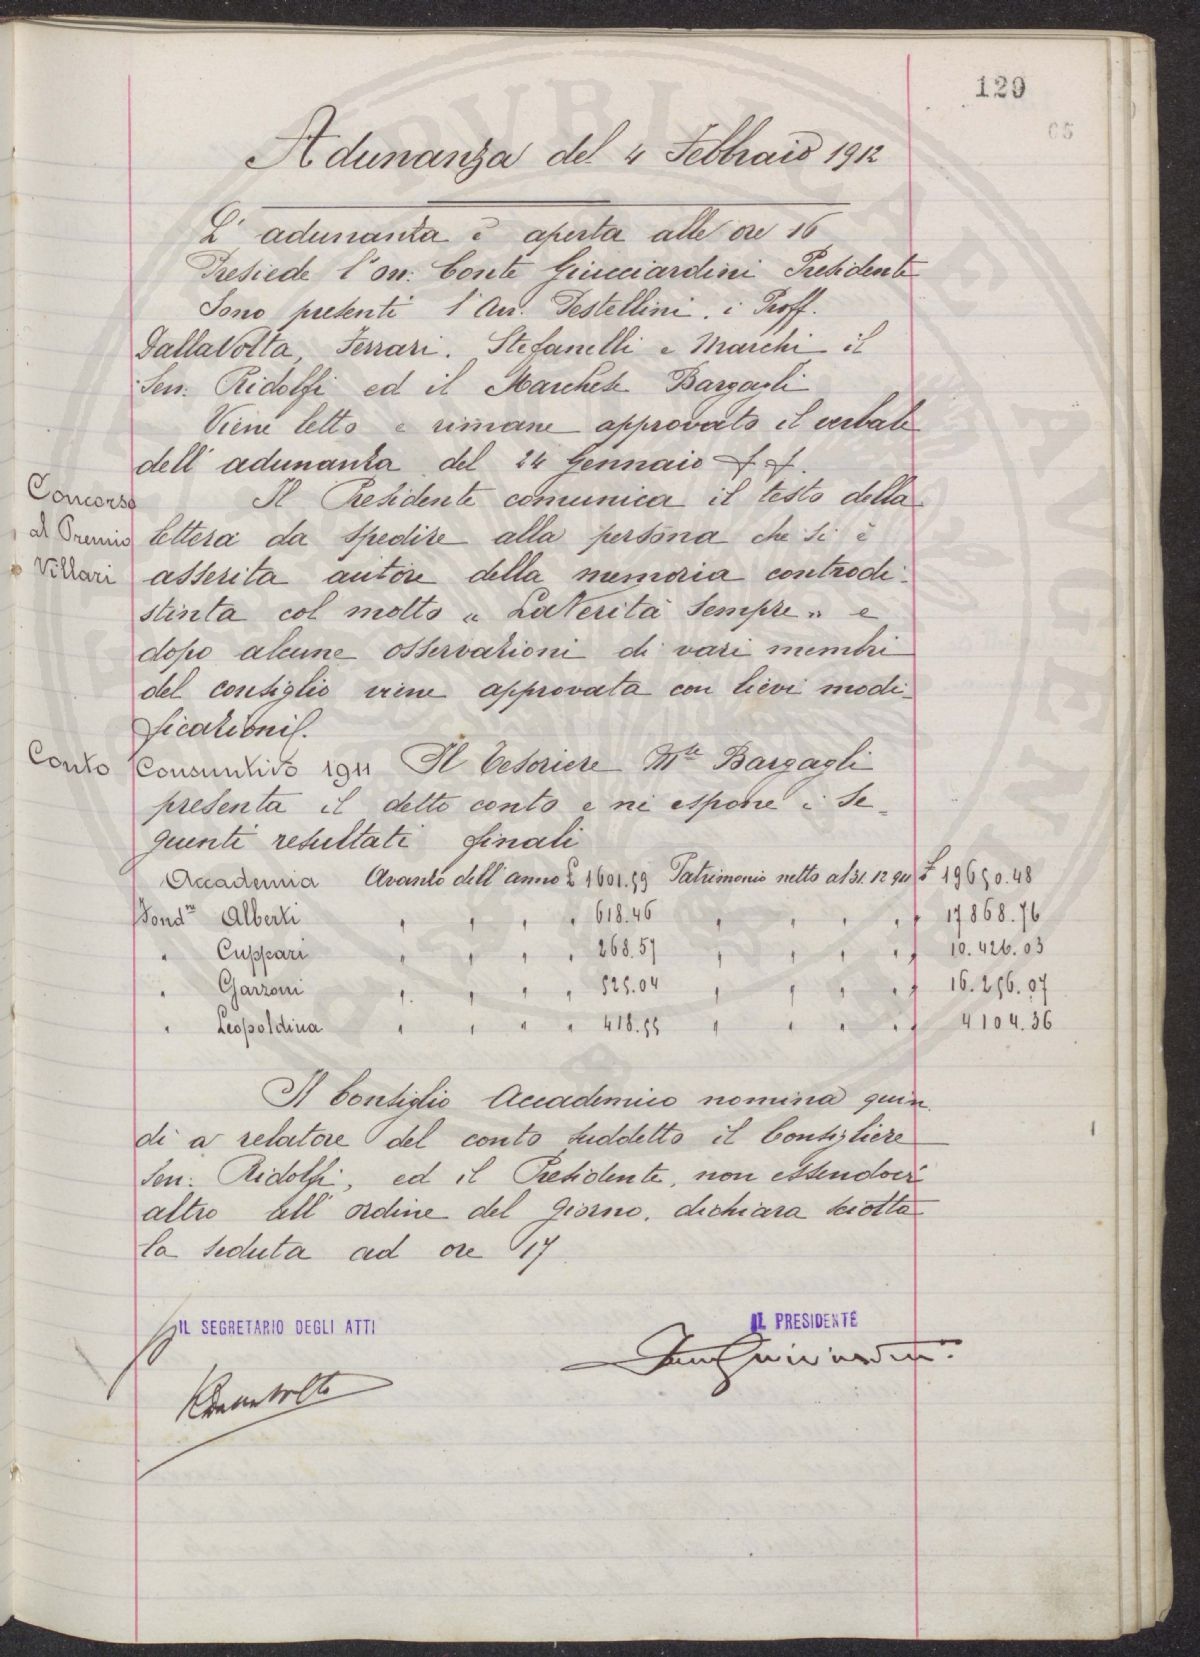 129
65
Adunanza del 4 Febbraio 1912
L'adunanza è aperta alle ore 16
Presiede l'on. Conte Guicciardini Presidente
Sono presenti l'Avv. Pestellini, i Proff.
Dalla Volta, Ferrari, Stefanelli e Marchi il
Sen. Ridolfi ed il Marchese Bargagli
Viene letto e rimane approvato il verbale
dell'adunanza del 24 Gennaio
Concorso al Premio Villari
Il Presidente comunica il testo della
lettera da spedire alla persona che si è
asserita autore della memoria controdi-
stinta col motto "La Verità sempre" e
dopo alcune osservazioni di vari membri
del consiglio viene approvata con lievi modi-
ficazioni.
Conto Consuntivo 1911 Il Tesoriere Mse Bargagli
presenta il detto conto e ne espone i se-
guenti resultati finali
Accademia Avanzo dell'anno £ 1601.59 Patrimonio netto al 31.12.911 £ 19650.48
Fondne Alberti " " " " 618.46 " " " " 17868.76
" Cuppari " " " " 268.57 " " " " 10.426.03
" Garzoni " " " " 525.04 " " " " 16.256.07
" Leopoldina " " " " 418.55 " " " " 4104.36
Il Consiglio Accademico nomina quin
di a relatore del conto suddetto il Consigliere
Sen. Ridolfi, ed il Presidente, non essendoci
altro all'ordine del giorno, dichiara sciolta
la seduta ad ore 17
IL SEGRETARIO DEGLI ATTI
IL PRESIDENTE